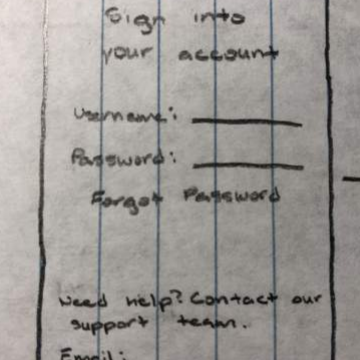 Sign into
your account
Username:
Password:
Forgot Password
Need help? Contact our
support team.
Email: